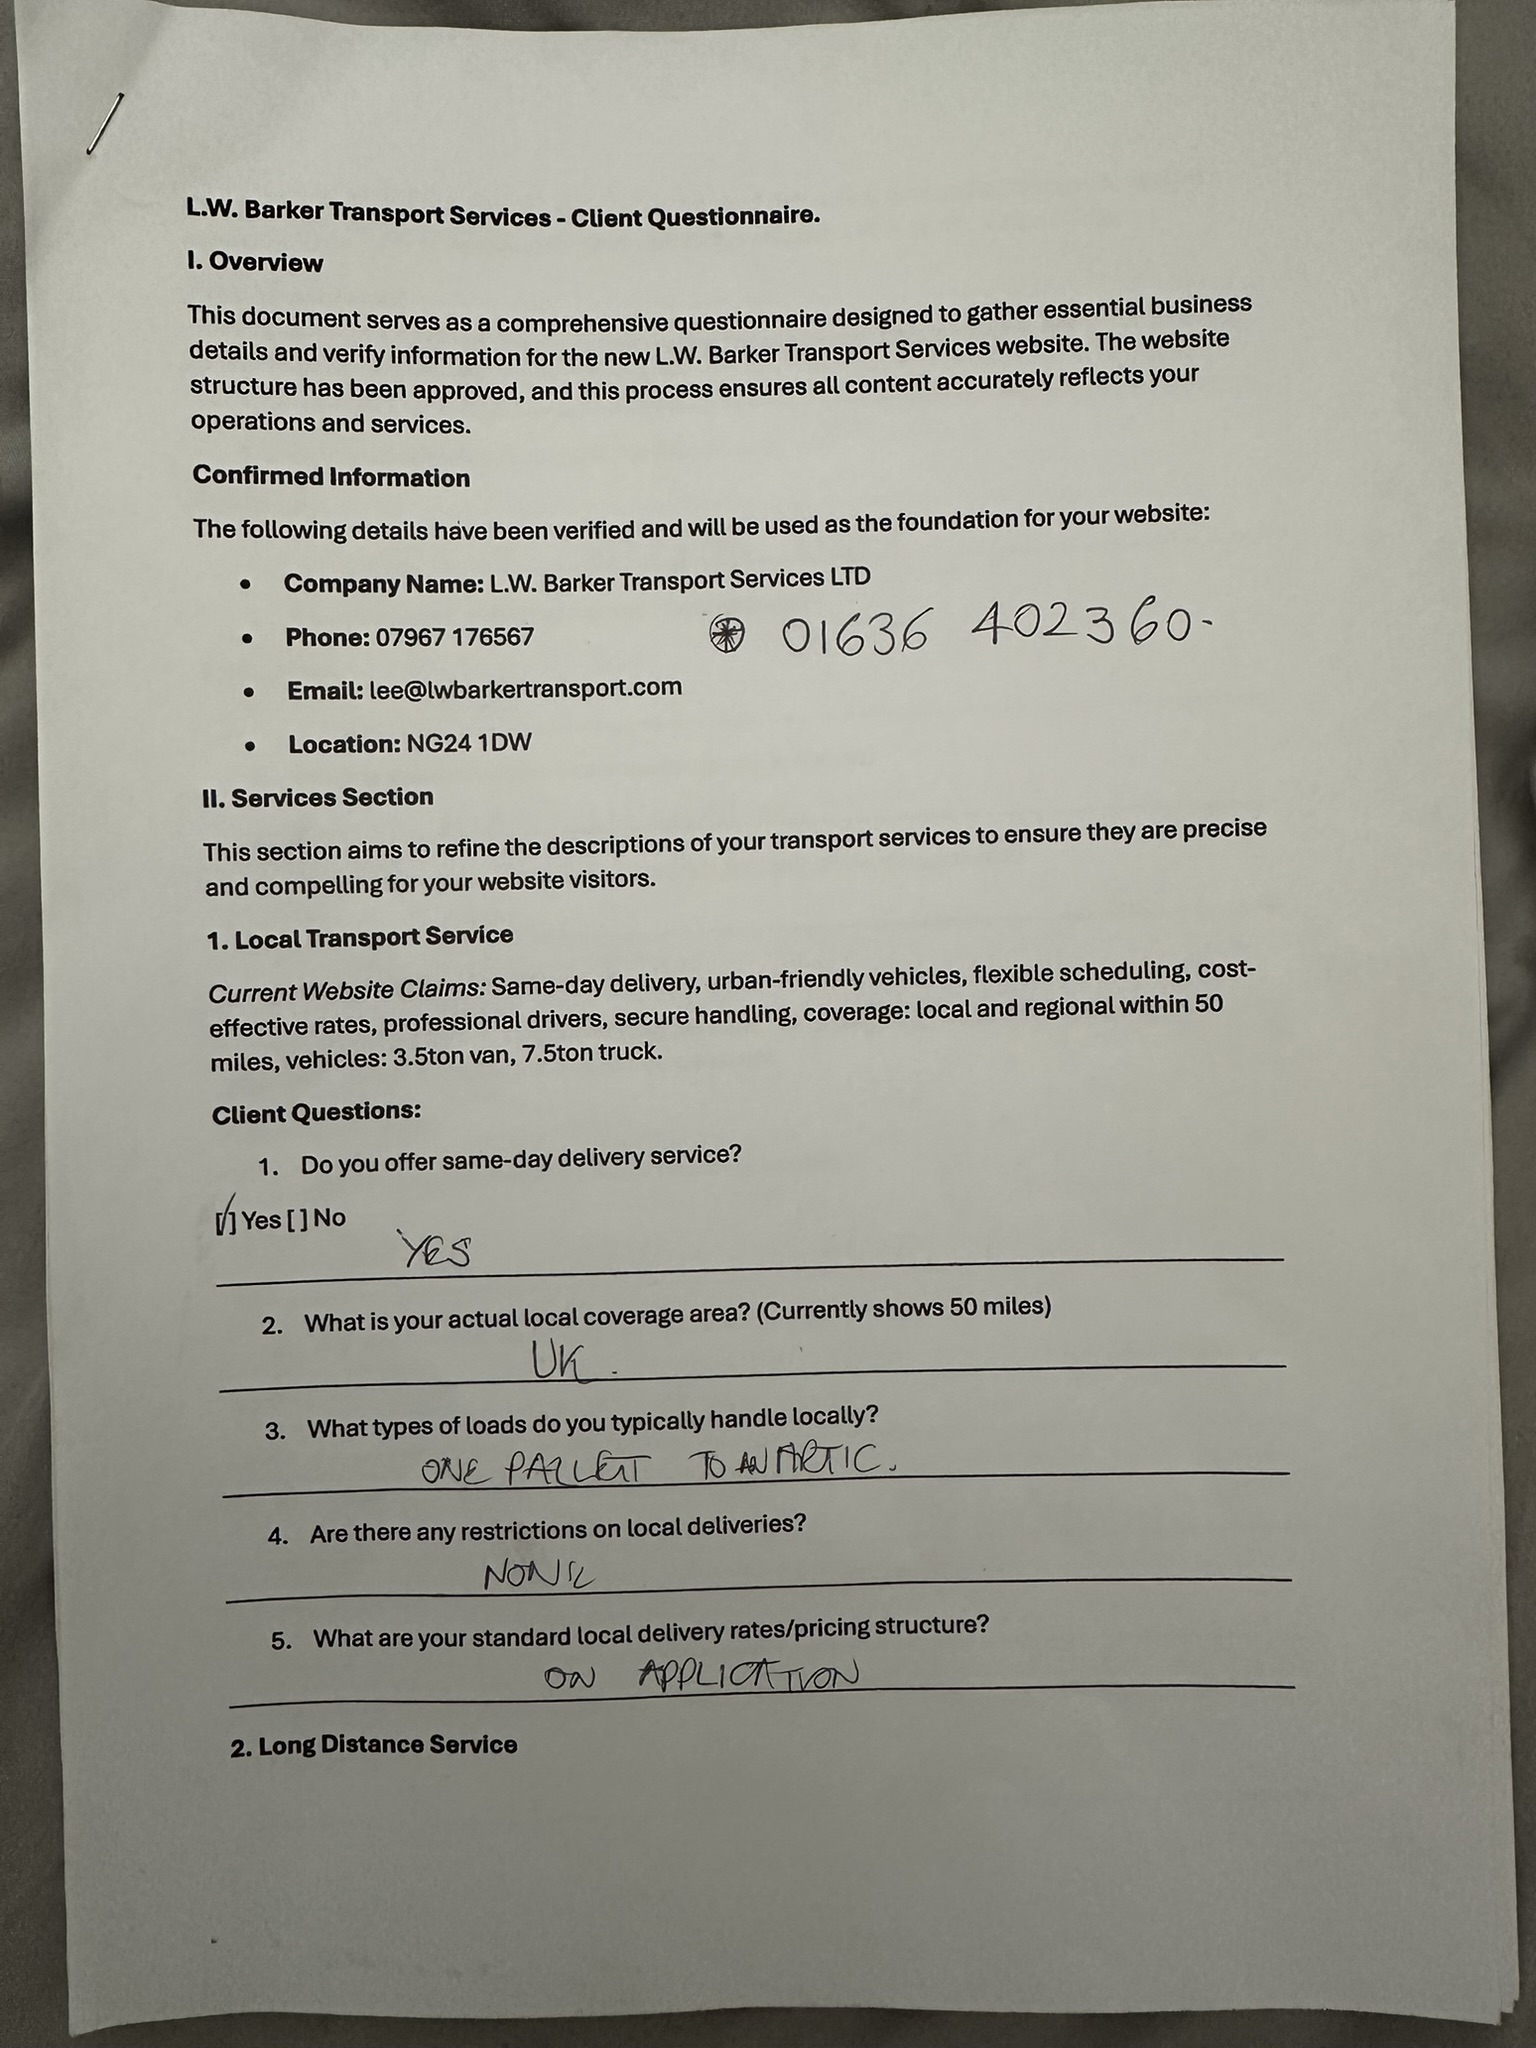 L.W. Barker Transport Services - Client Questionnaire.
I. Overview
This document serves as a comprehensive questionnaire designed to gather essential business
details and verify information for the new L.W. Barker Transport Services website. The website
structure has been approved, and this process ensures all content accurately reflects your
operations and services.
Confirmed Information
The following details have been verified and will be used as the foundation for your website:
• Company Name: L.W. Barker Transport Services LTD
• Phone: 07967 176567 01636 402360.
• Email: lee@lwbarkertransport.com
• Location: NG24 1DW
II. Services Section
This section aims to refine the descriptions of your transport services to ensure they are precise
and compelling for your website visitors.
1. Local Transport Service
Current Website Claims: Same-day delivery, urban-friendly vehicles, flexible scheduling, cost-
effective rates, professional drivers, secure handling, coverage: local and regional within 50
miles, vehicles: 3.5ton van, 7.5ton truck.
Client Questions:
1. Do you offer same-day delivery service?
[/] Yes [ ] No
YES
2. What is your actual local coverage area? (Currently shows 50 miles)
UK.
3. What types of loads do you typically handle locally?
ONE PALLET TO AN ARTIC.
4. Are there any restrictions on local deliveries?
NONE
5. What are your standard local delivery rates/pricing structure?
ON APPLICATION
2. Long Distance Service